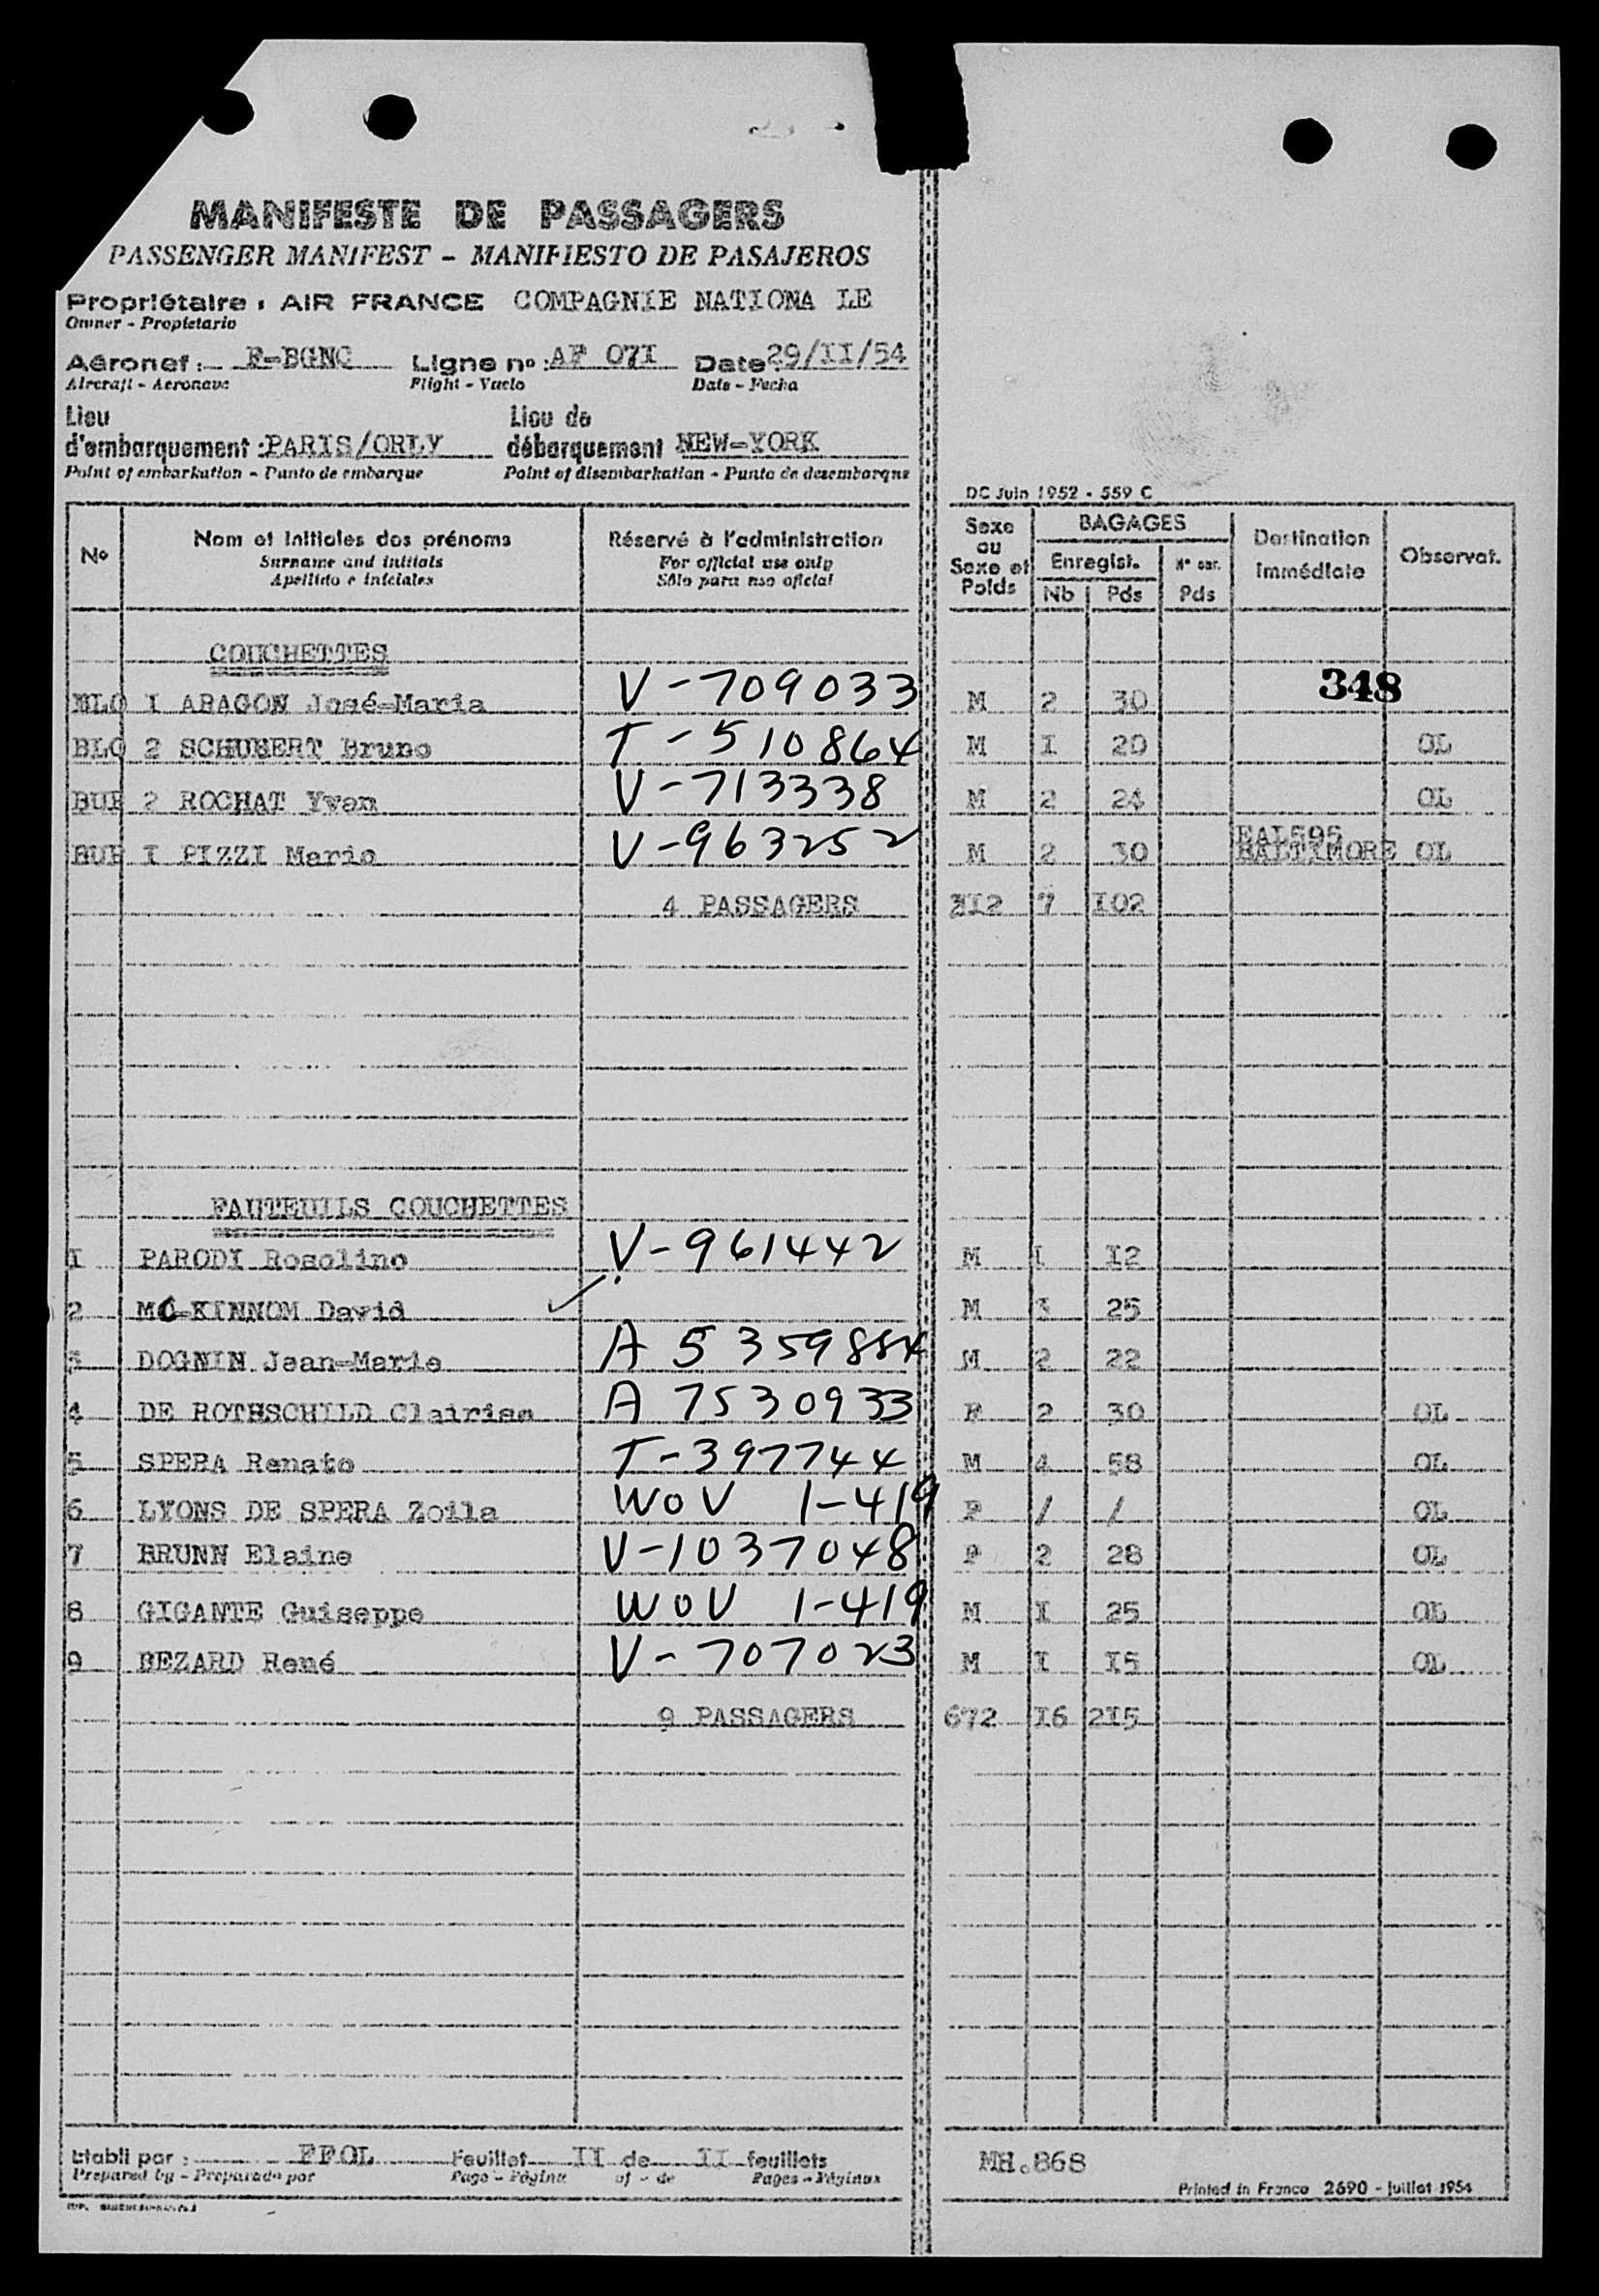 MANIFESTE DE PASSAGERS
PASSENGER MANIFEST - MANIFIESTO DE PASAJEROS
Propriétaire : AIR FRANCE COMPAGNIE NATIONA LE
Owner - Propietario
Aéronef :- F-BGNC Ligne no : AF 07I Date 29/II/54
Aircraft - Aeronave Flight - Vuelo Date - Fecha
Lieu Lieu de
d'embarquement : PARIS/ORLY débarquement NEW-YORK
Point of embarkation - Punto de embarque Point of disembarkation - Punto de desembarque
DC Juin 1952 - 559 C
No Nom et initiales des prénoms Réservé à l'administration Sexe ou Sexe et Poids BAGAGES Destination immédiate Observat.
Surname and initials For official use only Enregist. No car.
Apellido e iniciales Sólo para uso oficial Nb Pds Pds
COUCHETTES
348
BLO I ARAGON José-Maria V-709033 M 2 30
BLO 2 SCHUBERT Bruno T-510864 M I 20 OL
BUR 2 ROCHAT Yvan V-713338 M 2 24 OL
EAL595
BUR I PIZZI Mario V-963252 M 2 30 BALTIMORE OL
4 PASSAGERS 312 7 I02
FAUTEUILS COUCHETTES
1 PARODI Rosolino V-961442 M 1 I2
2 MC-KINNOM David M 25
3 DOGNIN Jean-Marie A 5359884 M 2 22
4 DE ROTHSCHILD Clairisse A 7530933 F 2 30 OL
5 SPERA Renato T-397744 M 4 58 OL
6 LYONS DE SPERA Zoila WOV 1-419 F / / OL
7 BRUNN Elaine V-1037048 F 2 28 OL
8 GIGANTE Guiseppe WOV 1-419 M I 25 OL
9 BEZARD René V-707023 M I I5 OL
9 PASSAGERS 672 I6 2I5
Etabli par : FFOL Feuillet II de II feuillets MH.868
Prepared by - Preparado por Page - Página of - de Pages - Páginas
Printed in France 2690 - Juillet 1954